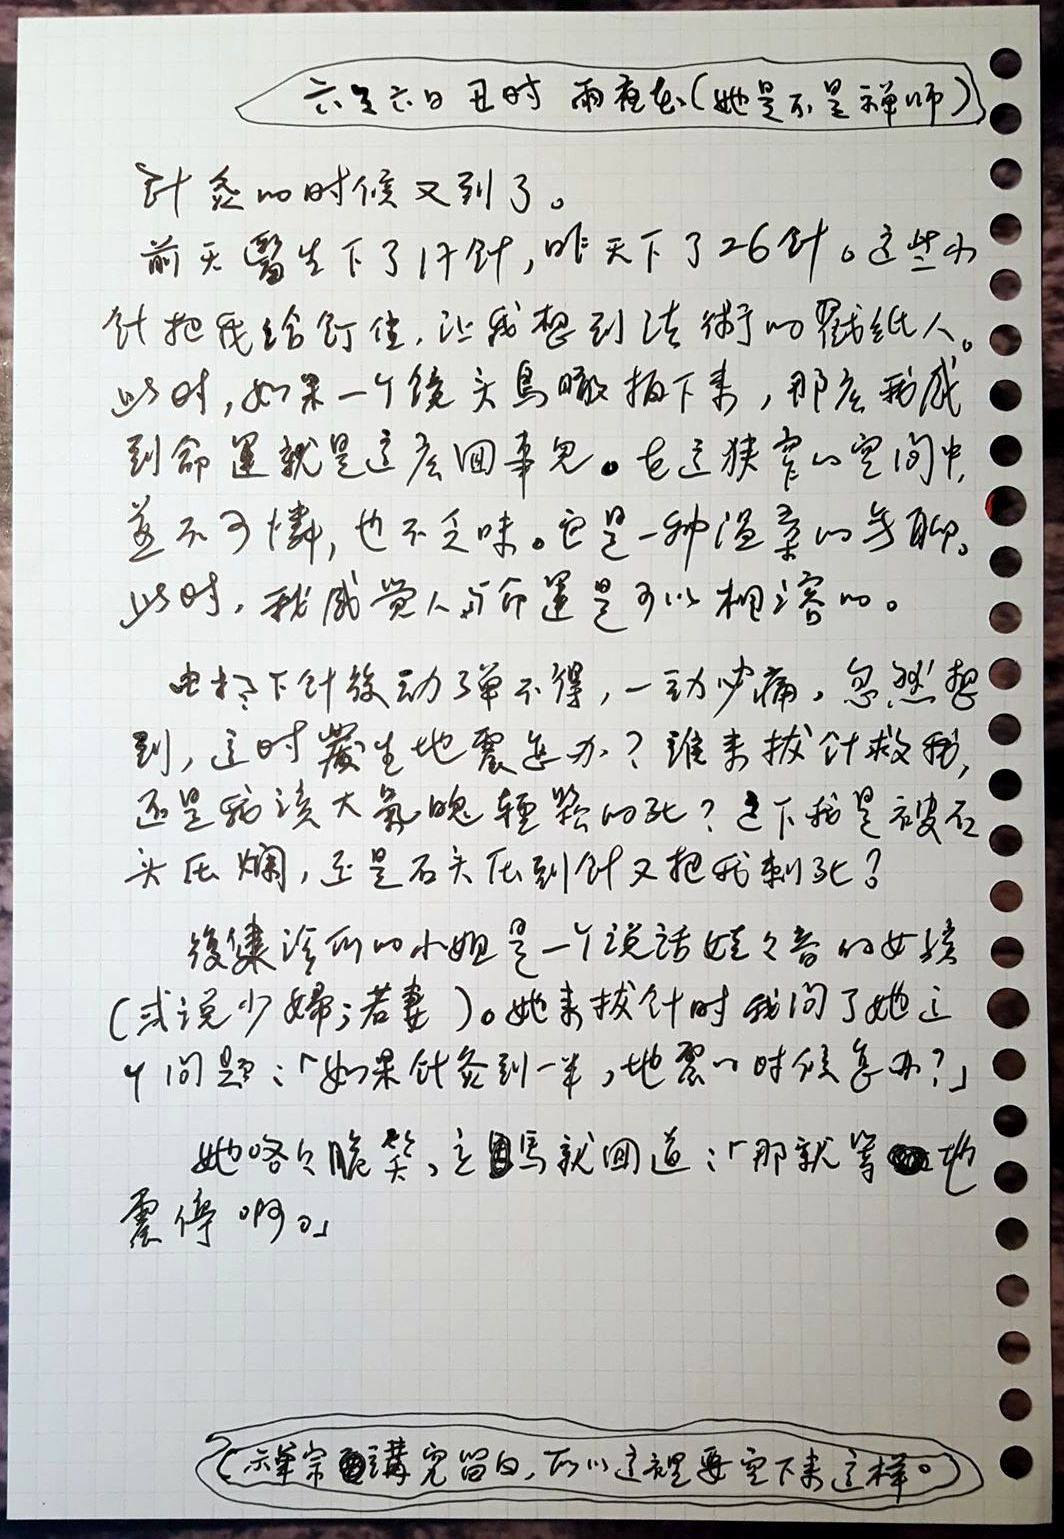 六月六日丑时 雨夜書(她是不是禅师)
針灸的时候又到了。
前天醫生下了17針,昨天下了26針。这些小
針把我给釘住,让我想到法術的戳纸人。
此时,如果一个镜头鳥瞰拍下来,那么我感
到命運就是这么回事兒。在这狭窄的空间中,
並不可憐,也不乏味。它是一种温柔的無聊。
此时,我感觉人与命運是可以相溶的。
由於下针後动弹不得,一动必痛。忽然想
到,这时發生地震怎办?誰来拔针救我,
还是我该大氣魄輕鬆的死?这下我是被石
头压爛,还是石头压到针又把我刺死?
復健診所的小姐是一个说话娃々音的女孩
(或说少婦;若妻)。她来拔针时我问了她这
个问题:「如果针灸到一半,地震的时候怎办?」
她咯々脆笑,立馬就回道:「那就等地
震停啊。」
(禅宗講究留白,所以这裡要空下来这样。)